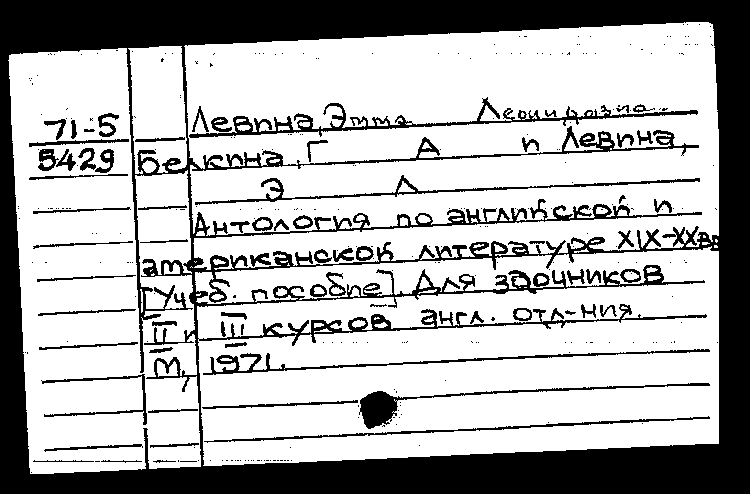 71-5 Левина, Эмма Леонидовна
5429 Белкина, Г А и Левина,
Э Л
Антология по английской и
американской литературе XIX-XXвв
[Учеб. пособие]. Для заочников
II и III курсов англ. отд-ния.
М, 1971.